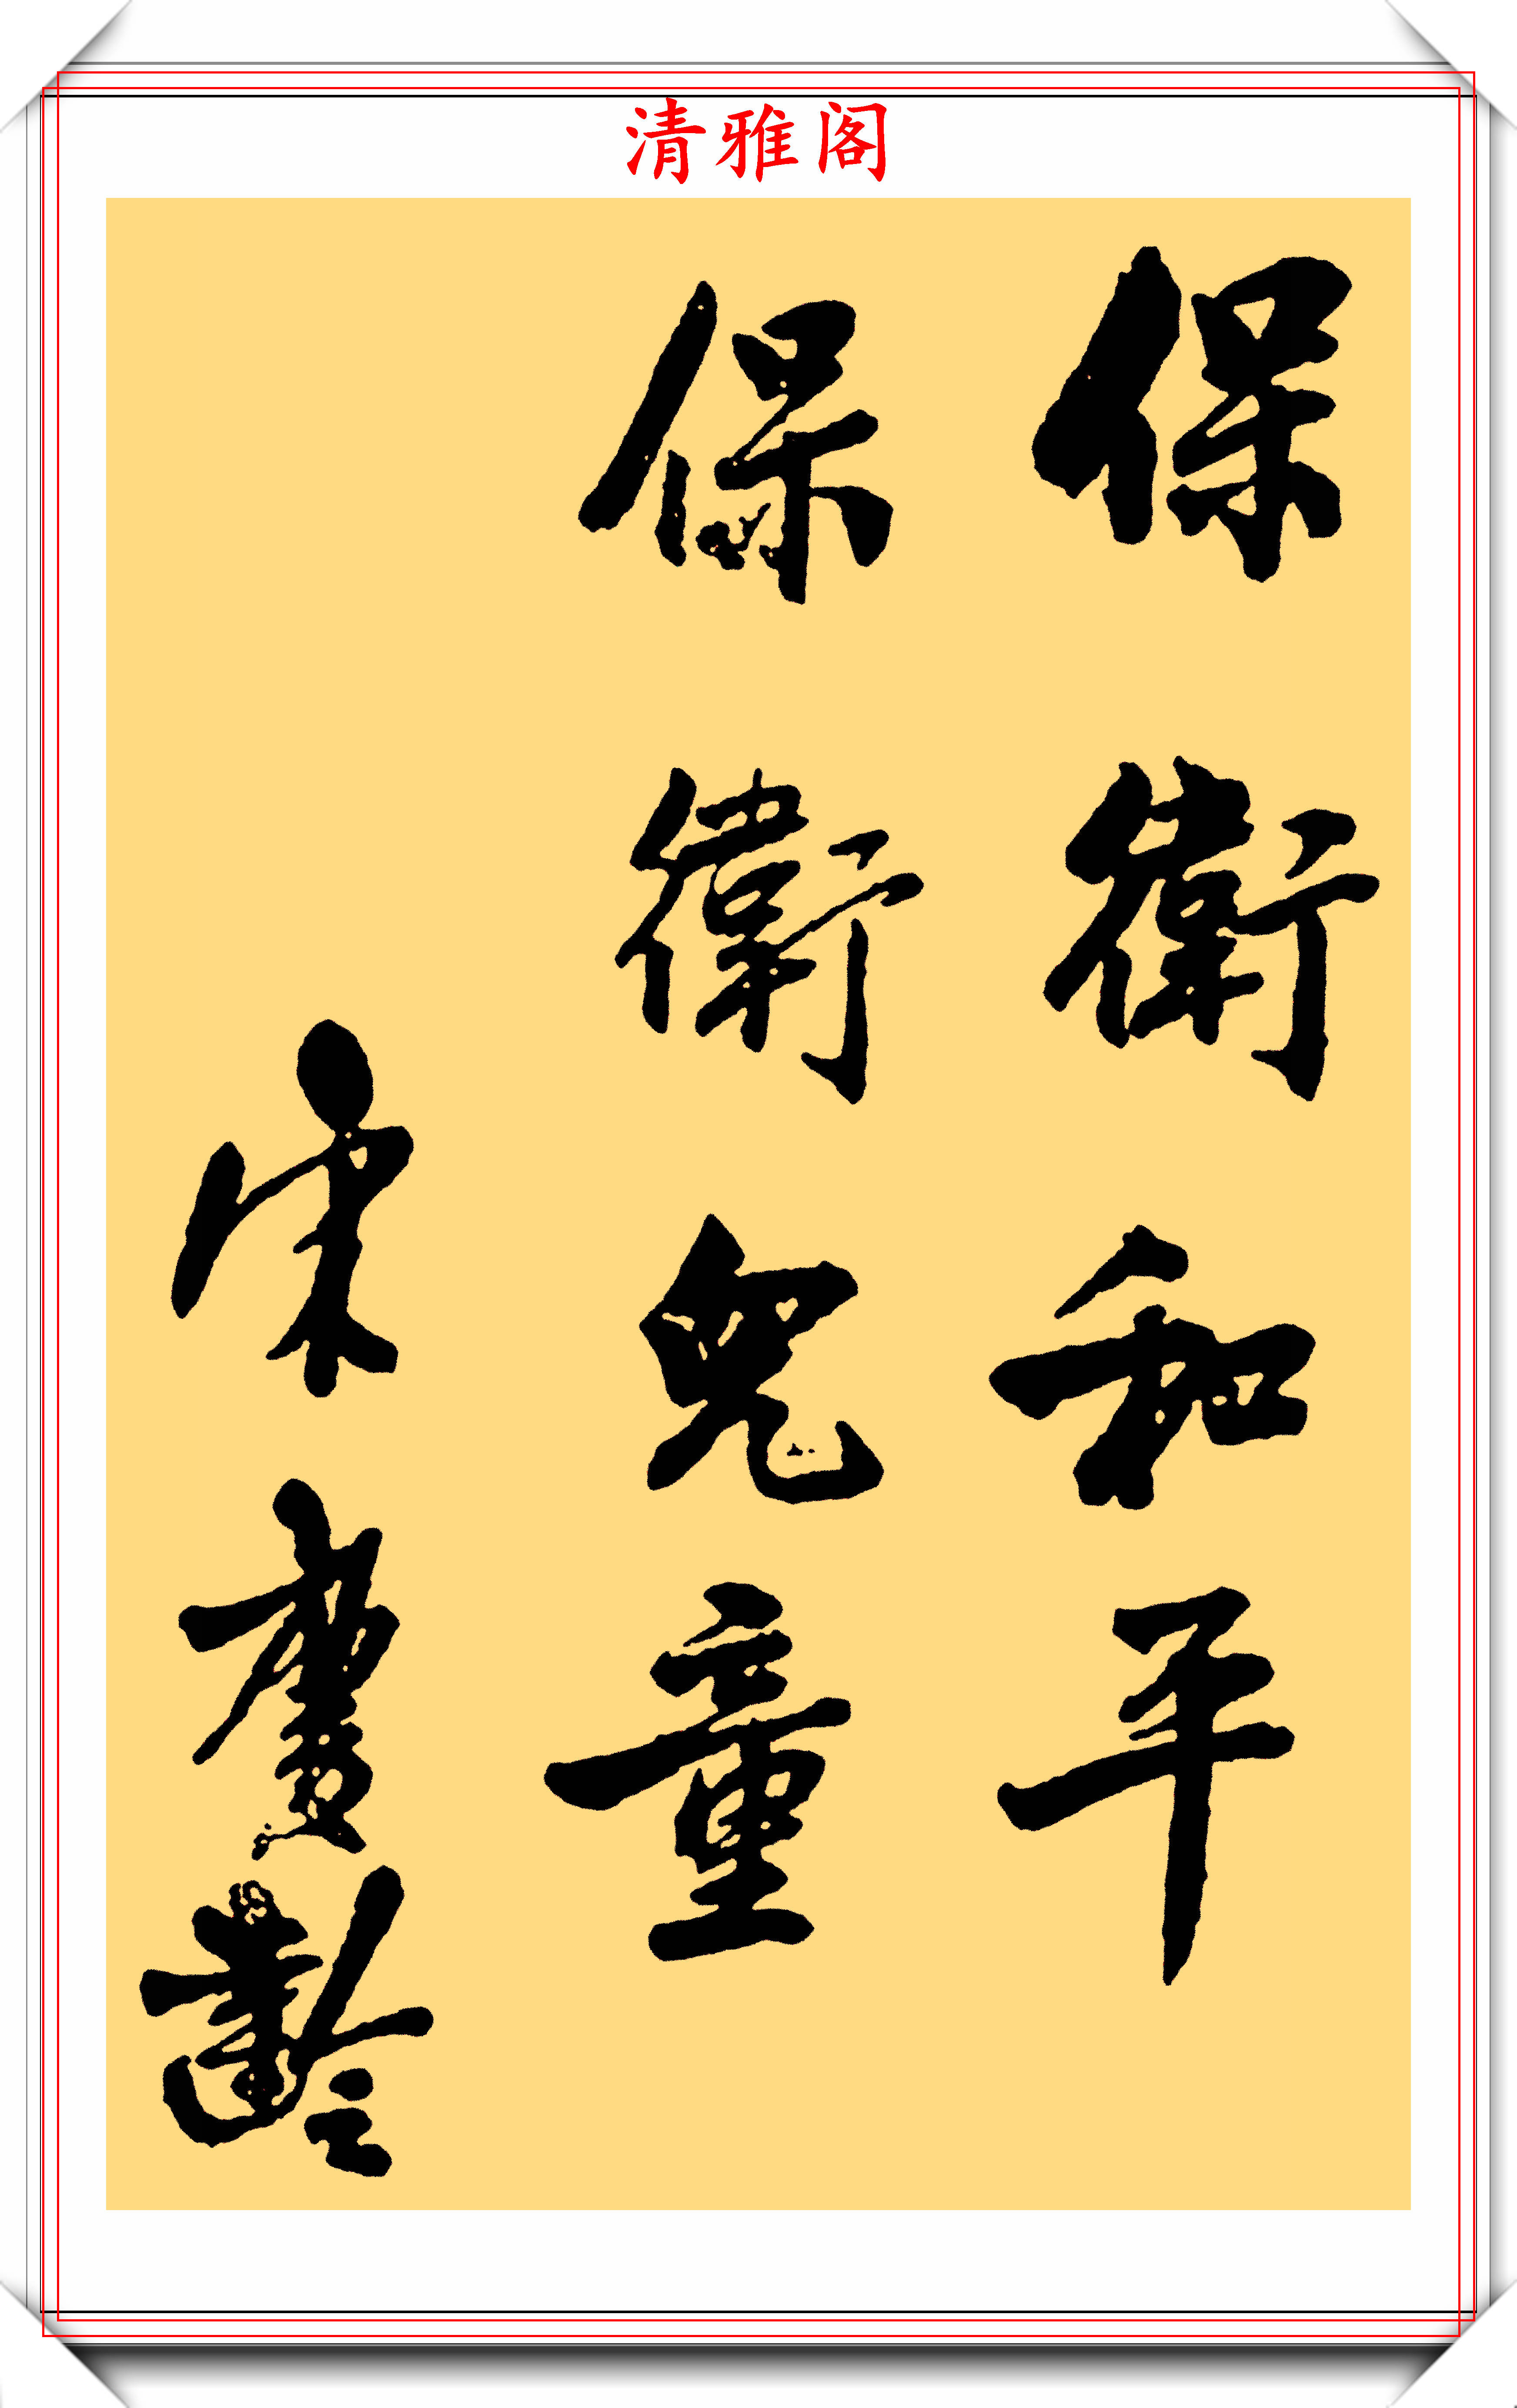 清雅阁
保衛和平
保衛兒童
宋慶齡